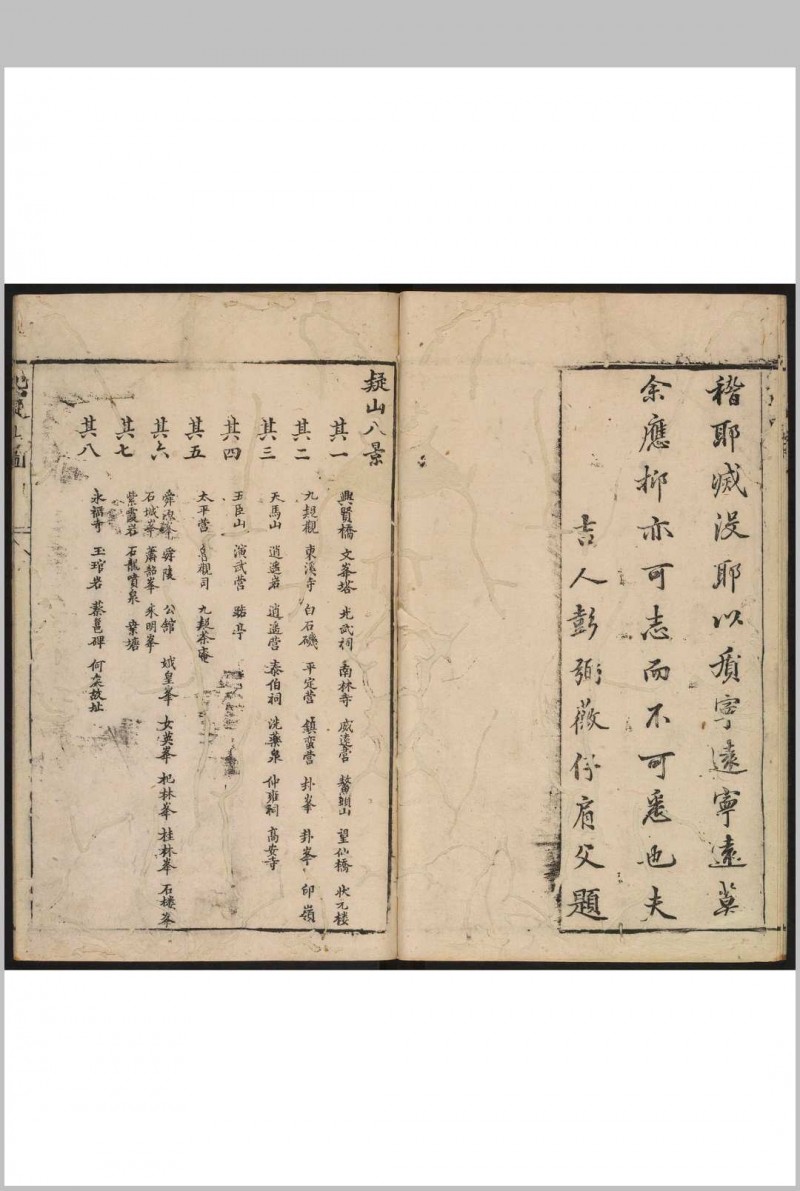 稽耶滅没耶以質寧遠寧遠莫
余應抑亦可志而不可悉也夫
吉人彭弼薇佟肩父題
疑山八景
其一 興賢橋 文峯塔 光武祠 南林寺 威遠营 鰲頭山 望仙橋 狀元楼
其二 九疑觀 東溪寺 白石磯 平定营 鎮蛮营 卦峯 卦峯 印嶺
其三 天馬山 逍遥岩 逍遥营 泰伯祠 洗藥泉 仲雍祠 高安寺
其四 玉臣山 演武营 路亭
其五 太平营 魯觀司 九疑茶庵
其六 舜源峰 舜陵 公舘 娥皇峯 女英峯 杞林峯 桂林峯 石楼峯
石城峯 蕭韶峯 朱明峯
其七 紫霞岩 石龍噴泉 葉塘
其八 永福寺 玉琯岩 蔡邕碑 何矦故址